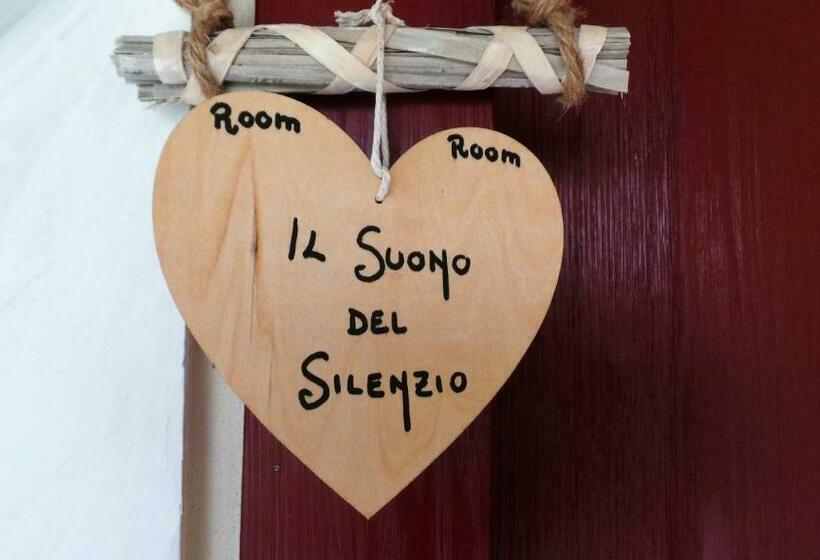 Room
Room
IL SUONO
DEL
SILENZIO